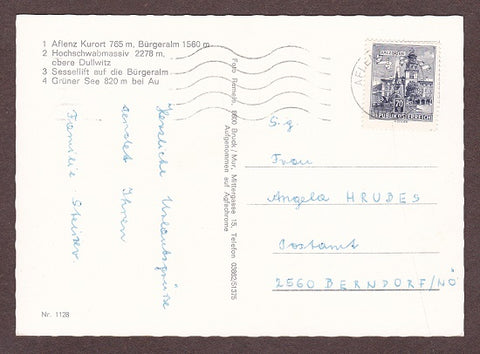 1 Aflenz Kurort 765 m, Bürgeralm 1560 m
2 Hochschwabmassiv 2278 m,
obere Dullwitz
3 Sessellift auf die Bürgeralm
4 Grüner See 820 m bei Au
Herzliche Urlaubsgrüße
sendet Ihnen
Familie Steirer
Nr. 1128
Foto Remele, 8600 Bruck/Mur, Mittergasse 15, Telefon 03862/51375
Aufgenommen auf Agfachrome
70
REPUBLIK ÖSTERREICH
AFLENZ
S.g.
Frau
Angela HRUBES
Postamt
2560 BERNDORF/NÖ